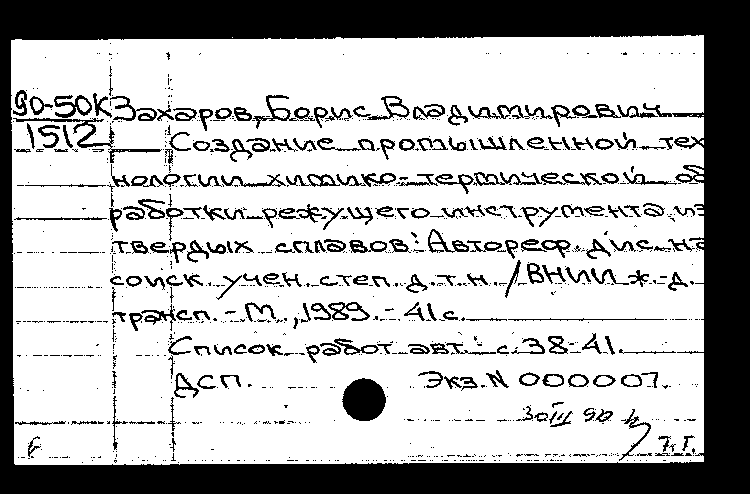 90-50К Захаров, Борис Владимирович
1512 Создание промышленной тех
нологии химико-термической об
работки режущего инструмента из
твердых сплавов: Автореф. дис. на
соиск. учен. степ. д.т.н. / ВНИИ ж.-д.
трансп. - М., 1989. - 41 с.
Список работ авт.: с. 38-41.
ДСП. Экз. N 000007.
30 III 90